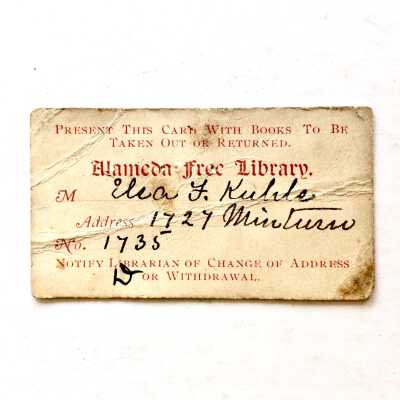 PRESENT THIS CARD WITH BOOKS TO BE
TAKEN OUT OR RETURNED.
Alameda Free Library.
M Elsa F. Kuhle
Address 1727 Minturn
No. 1735
NOTIFY LIBRARIAN OF CHANGE OF ADDRESS
OR WITHDRAWAL.
D